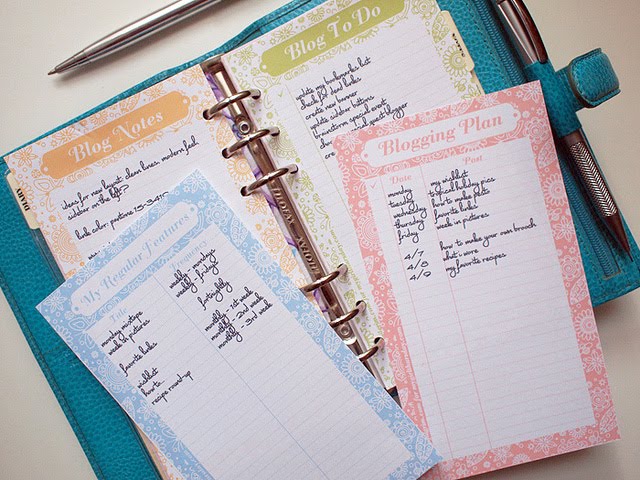 Blog Notes
ideas for new layout, clean lines, modern feel
sidebar on the left?
link color: pantone 15-34
DIARY
Blog To Do
update my bookmarks list
check for dead links
create new banner
update sidebar buttons
brainstorm special event
special guest blogger
Blogging Plan
Date Post
monday my wishlist
tuesday local holiday pics
wednesday how to make felt
thursday favorite links
friday week in pictures
4/7 how to make your own brooch
4/8 what i wore
4/9 my favorite recipes
My Regular Features
Title Frequency
monday mixtape weekly - mondays
week in pictures weekly - fridays
favorite links fortnightly
wishlist monthly - 1st week
how to monthly - 2nd week
recipe round-up monthly - 3rd week